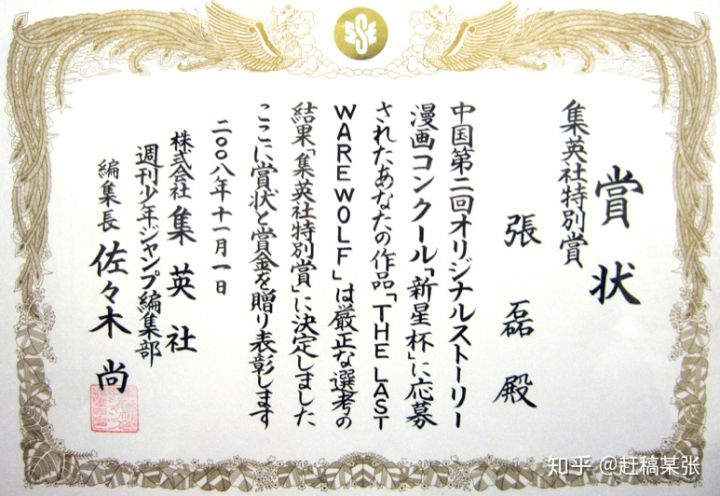 賞状
集英社特別賞
張 磊 殿
中国第二回オリジナルストーリー
漫画コンクール「新星杯」に応募
されたあなたの作品「THE LAST
WAREWOLF」は厳正な選考の
結果「集英社特別賞」に決定しました
ここに賞状と賞金を贈り表彰します
二〇〇八年十一月一日
株式会社 集英社
週刊少年ジャンプ編集部
編集長 佐々木 尚
知乎 @赶稿某张